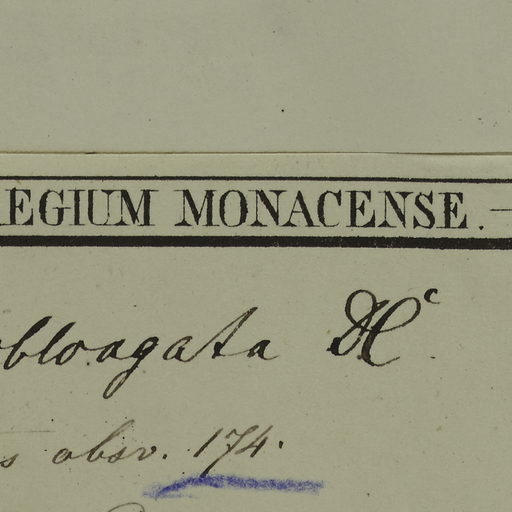 EGIUM MONACENSE. —
oblongata DC.
s absv. 174.